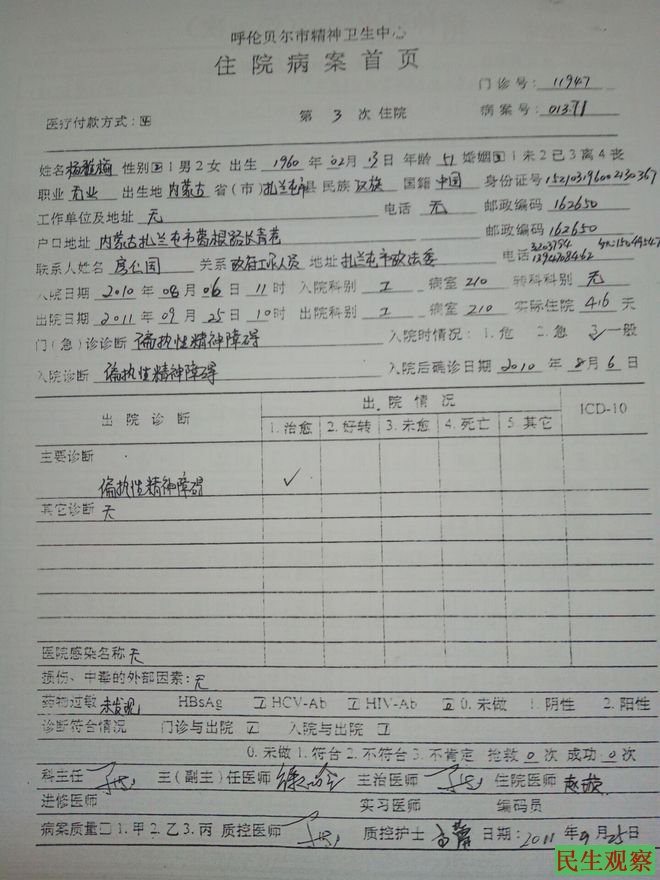 呼伦贝尔市精神卫生中心
住院病案首页
门诊号: 11947
医疗付款方式: 第 3 次 住院 病案号: 01371
姓名 杨雅梅 性别 2 1男 2女 出生 1960 年 02 月 13 日 年龄 51 婚姻 1未 2已 3离 4丧
职业 无业 出生地 内蒙古 省(市) 扎兰屯市 县 民族 汉族 国籍 中国 身份证号
工作单位及地址 无 电话 无 邮政编码 162650
户口地址 内蒙古扎兰屯市葛根路长青巷 邮政编码 162650
联系人姓名 关系 政府工作人员 地址 扎兰屯市政法委 电话
入院日期 2010 年 08 月 06 日 11 时 入院科别 病室 210 转科科别 无
出院日期 2011 年 09 月 25 日 10 时 出院科别 病室 210 实际住院 416 天
门(急)诊诊断 偏执性精神障碍 入院时情况: 1.危 2.急 3.一般
入院诊断 偏执性精神障碍 入院后确诊日期 2010 年 8 月 6 日
出院诊断 出院情况 ICD-10
1.治愈 2.好转 3.未愈 4.死亡 5.其它
主要诊断
偏执性精神障碍 ✓
其它诊断 无
医院感染名称 无
损伤、中毒的外部因素: 无
药物过敏 未发现 HBsAg HCV-Ab HIV-Ab 0.未做 1.阴性 2.阳性
诊断符合情况 门诊与出院 入院与出院
0.未做 1.符合 2.不符合 3.不肯定 抢救 0 次 成功 0 次
科主任 主(副主)任医师 主治医师 住院医师
进修医师 实习医师 编码员
病案质量 □ 1.甲 2.乙 3.丙 质控医师 质控护士 日期: 2011 年 9 月 25 日
民生观察